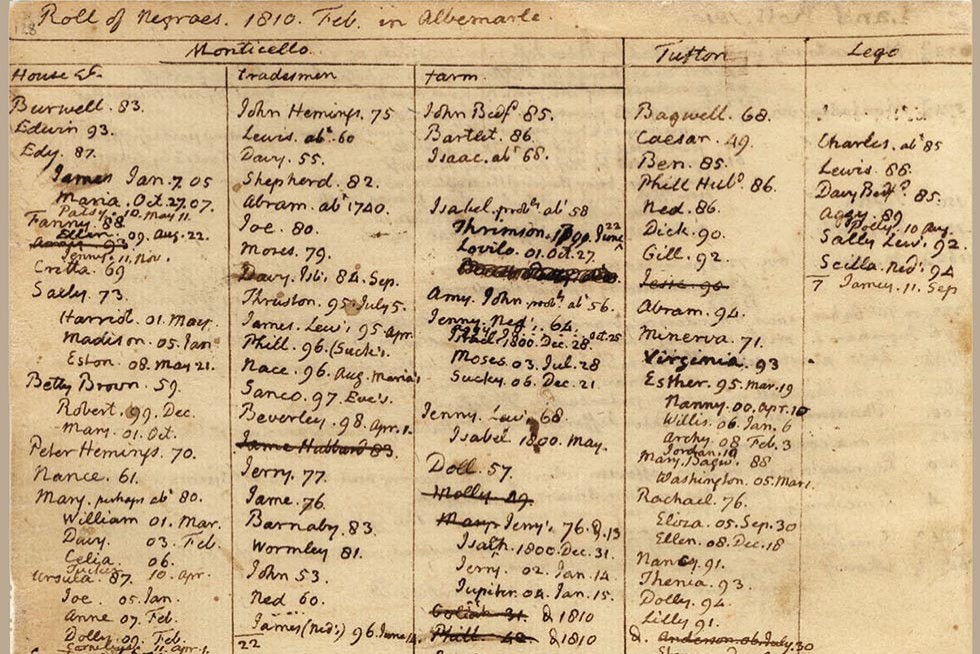 Roll of Negroes. 1810. Feb. in Albemarle.
Monticello
House &c.
Burwell. 83.
Edwin 93.
Edy. 87.
James Jan. 7. 05
Maria. Oct. 27. 07.
Patsy. 10. May 11.
Fanny. 88
Ellen. 09. Aug. 22.
Jenny. 11. Nov.
Cretta. 69
Sally. 73.
Harriet. 01. May.
Madison. 05. Jan
Eston. 08. May 21.
Betty Brown. 59.
Robert. 99. Dec.
Mary. 01. Oct.
Peter Hemings. 70.
Nance. 61.
Mary. perhaps abt 80.
William 01. Mar.
Davy. 03. Feb.
Celia 06.
Tucker 10. apr.
Ursula. 87.
Joe. 05. Jan.
Anne 07. Feb.
Dolly. 09. Feb.
Cornelius. 11. Apr. 1.
Tradesmen
John Hemings. 75
Lewis. abt. 60
Davy. 55.
Shepherd. 82.
Abram. abt 1740.
Joe. 80.
Moses. 79.
Davy. Isb. 84. Sep.
Thruston. 95. July 5.
James. Lew's 95. Apr.
Phill. 96. (Suck's.
Nace. 96. Aug. Maria's
Sanco. 97. Eve's.
Beverley. 98. Apr. 1.
Jame Hubbard 83.
Jerry. 77.
Jame. 76.
Barnaby. 83.
Wormley 81.
John 53.
Ned 60.
James (Ned's) 96. June
22
Farm.
John Bedf. 85.
Bartlet. 86.
Isaac. abt 68.
Isabel. probly abt 58
Thrimson. 1799. June 22
Lovilo. 01. Oct. 27.
Amy. John probly abt 56.
Jenny. Ned's. 64.
Israel. 1800. Dec. 28
Moses. 03. Jul. 28
Sucky. 06. Dec. 21
Jenny. Lew's 68.
Isabel. 1800. May.
Doll. 57.
Molly 49
Mary Jerry's. 76. D. 13
Isaiah. 1800. Dec. 31.
Jerry. 02. Jan. 14.
Jupiter. 04. Jan. 15.
Goliah 31. D 1810
Phill. D 1810
Tufton
Bagwell. 68.
Caesar. 49.
Ben. 85.
Phill Hubd. 86.
Ned. 86.
Dick. 90.
Gill. 92.
Jesse 90
Abram. 94.
Minerva. 71.
Virginia. 93
Esther. 95. Mar. 19
Nanny. 00. Apr. 10
Willis. 06. Jan. 6
Archy. 08 Feb. 3
Jordan.
Mary. Bagw. 88
Washington. 05. Mar.
Rachael. 76.
Eliza. 05. Sep. 30
Ellen. 08. Dec. 18
Nancy. 91.
Thenia. 93.
Dolly. 94.
Lilly 91.
D. Anderson. 06. July. 30
Lego
Charles. abt 85
Lewis. 88.
Davy Bedf. 85.
Aggy. 89
Polly. 10 Aug.
Sally Lew'. 92.
Scilla. Ned's 94
7 James. 11. Sep